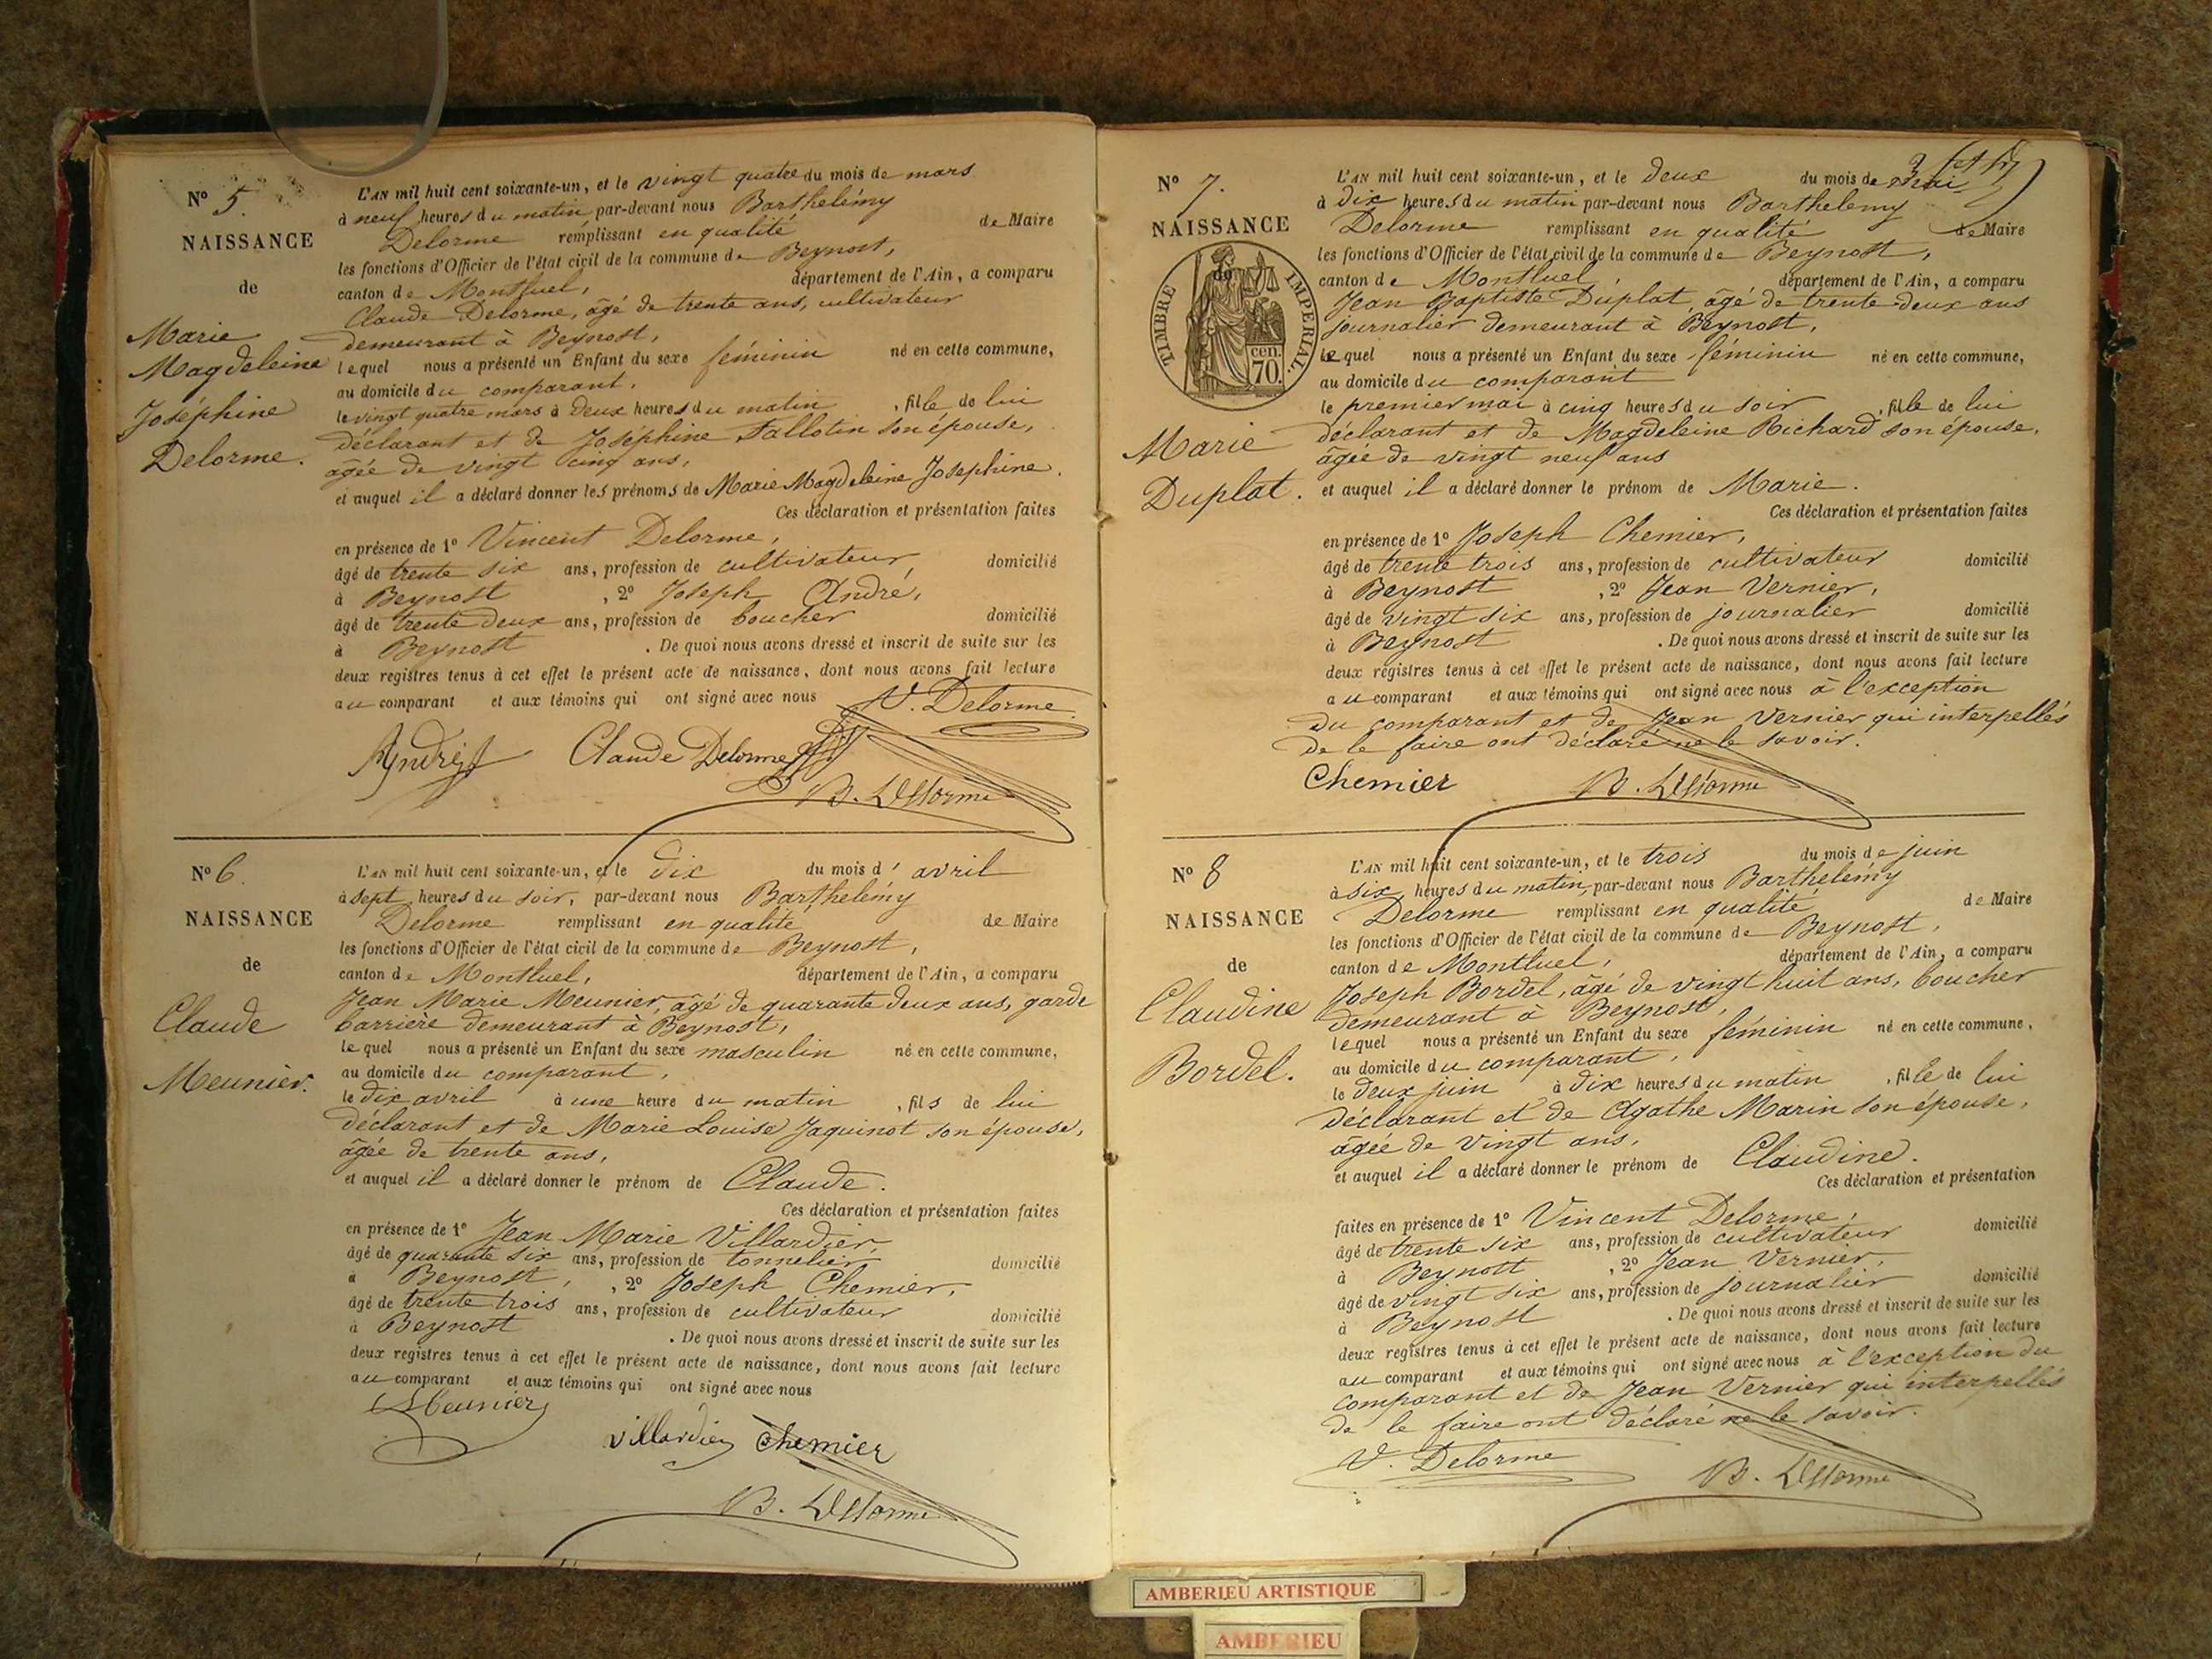 Nº 5.
NAISSANCE
de
Marie
Magdeleine
Joséphine
Delorme.
L'AN mil huit cent soixante-un, et le vingt quatre du mois de mars
à neuf heures du matin par-devant nous Barthelémy
Delorme remplissant en qualité de Maire
les fonctions d'Officier de l'état civil de la commune de Beynost,
canton de Montluel, département de l'Ain, a comparu
Claude Delorme, âgé de trente ans, cultivateur
demeurant à Beynost,
lequel nous a présenté un Enfant du sexe féminin né en cette commune,
au domicile du comparant,
le vingt quatre mars à deux heures du matin, fille de lui
déclarant et de Joséphine Tallotin son épouse,
âgée de vingt cinq ans,
et auquel il a déclaré donner les prénoms de Marie Magdeleine Josephine.
Ces déclaration et présentation faites
en présence de 1º Vincent Delorme,
âgé de trente six ans, profession de cultivateur, domicilié
à Beynost, 2º Joseph André,
âgé de trente deux ans, profession de boucher domicilié
à Beynost. De quoi nous avons dressé et inscrit de suite sur les
deux registres tenus à cet effet le présent acte de naissance, dont nous avons fait lecture
au comparant et aux témoins qui ont signé avec nous V. Delorme
André Claude Delorme
B. Delorme
Nº 6.
NAISSANCE
de
Claude
Meunier.
L'AN mil huit cent soixante-un, et le dix du mois d'avril
à sept heures du soir, par-devant nous Barthelémy
Delorme remplissant en qualité de Maire
les fonctions d'Officier de l'état civil de la commune de Beynost,
canton de Montluel, département de l'Ain, a comparu
Jean Marie Meunier, âgé de quarante deux ans, garde
barrière demeurant à Beynost,
lequel nous a présenté un Enfant du sexe masculin né en cette commune,
au domicile du comparant,
le dix avril à une heure du matin, fils de lui
déclarant et de Marie Louise Jaquinot son épouse,
âgée de trente ans,
et auquel il a déclaré donner le prénom de Claude.
Ces déclaration et présentation faites
en présence de 1º Jean Marie Villardier,
âgé de quarante six ans, profession de tonnelier domicilié
à Beynost, 2º Joseph Chemier,
âgé de trente trois ans, profession de cultivateur domicilié
à Beynost. De quoi nous avons dressé et inscrit de suite sur les
deux registres tenus à cet effet le présent acte de naissance, dont nous avons fait lecture
au comparant et aux témoins qui ont signé avec nous
Meunier
Villardier Chemier
B. Delorme
Nº 7.
NAISSANCE
de
TIMBRE IMPERIAL
cen.
70.
Marie
Duplat.
L'AN mil huit cent soixante-un, et le deux du mois de mai
à dix heures du matin par-devant nous Barthelemy
Delorme remplissant en qualité de Maire
les fonctions d'Officier de l'état civil de la commune de Beynost,
canton de Montluel, département de l'Ain, a comparu
Jean Baptiste Duplat, âgé de trente deux ans
journalier demeurant à Beynost,
lequel nous a présenté un Enfant du sexe féminin né en cette commune,
au domicile du comparant
le premier mai à cinq heures du soir, fille de lui
déclarant et de Magdeleine Richard son épouse,
âgée de vingt neuf ans
et auquel il a déclaré donner le prénom de Marie.
Ces déclaration et présentation faites
en présence de 1º Joseph Chemier,
âgé de trente trois ans, profession de cultivateur domicilié
à Beynost, 2º Jean Vernier,
âgé de vingt six ans, profession de journalier domicilié
à Beynost. De quoi nous avons dressé et inscrit de suite sur les
deux régistres tenus à cet effet le présent acte de naissance, dont nous avons fait lecture
au comparant et aux témoins qui ont signé avec nous à l'exception
du comparant et de Jean Vernier qui interpellés
de le faire ont déclaré ne le savoir.
Chemier B. Delorme
Nº 8
NAISSANCE
de
Claudine
Bordel.
L'AN mil huit cent soixante-un, et le trois du mois de juin
à six heures du matin, par-devant nous Barthelémy
Delorme remplissant en qualité de Maire
les fonctions d'Officier de l'état civil de la commune de Beynost,
canton de Montluel, département de l'Ain, a comparu
Joseph Bordel, âgé de vingt huit ans, boucher
demeurant à Beynost,
lequel nous a présenté un Enfant du sexe féminin né en cette commune,
au domicile du comparant,
le deux juin à dix heures du matin, fille de lui
déclarant et de Agathe Marin son épouse,
âgée de vingt ans,
et auquel il a déclaré donner le prénom de Claudine.
Ces déclaration et présentation
faites en présence de 1º Vincent Delorme,
âgé de trente six ans, profession de cultivateur domicilié
à Beynost, 2º Jean Vernier,
âgé de vingt six ans, profession de journalier domicilié
à Beynost. De quoi nous avons dressé et inscrit de suite sur les
deux registres tenus à cet effet le présent acte de naissance, dont nous avons fait lecture
au comparant et aux témoins qui ont signé avec nous à l'exception du
comparant et de Jean Vernier qui interpellés
de le faire ont déclaré ne le savoir.
V. Delorme B. Delorme
AMBERIEU ARTISTIQUE
AMBERIEU